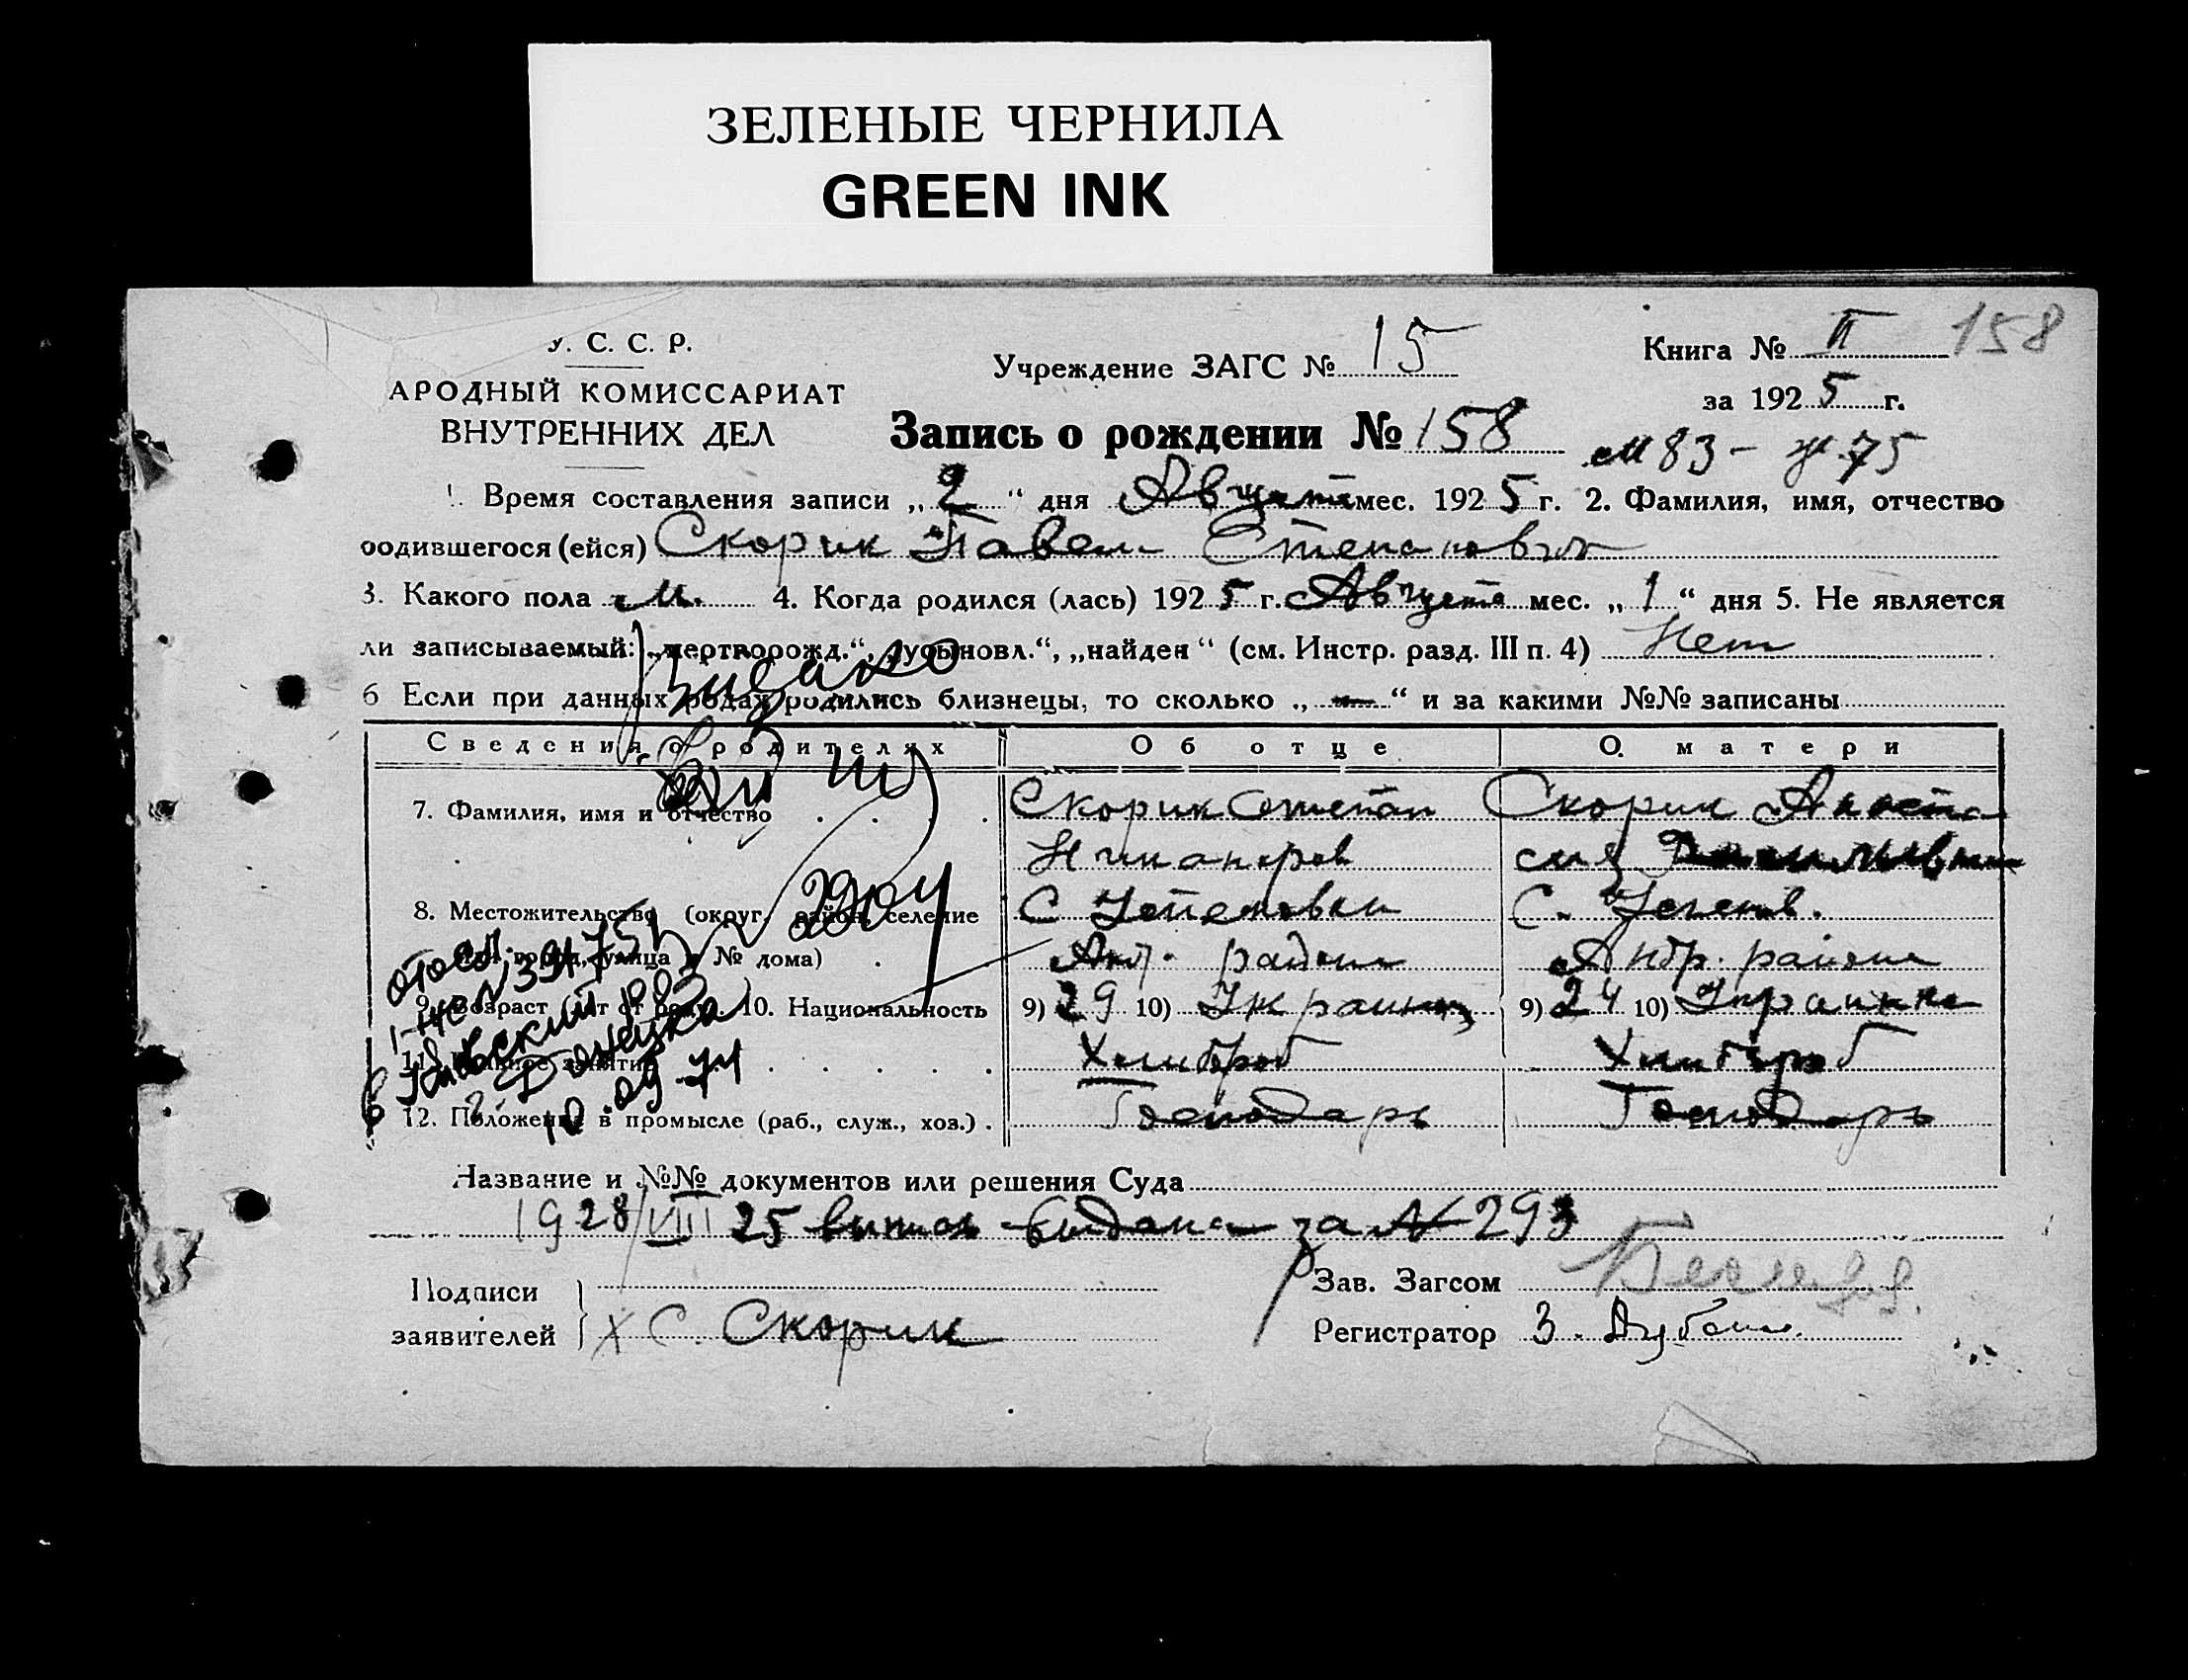 ЗЕЛЕНЫЕ ЧЕРНИЛА
GREEN INK
У. С. С. Р.
АРОДНЫЙ КОМИССАРИАТ
ВНУТРЕННИХ ДЕЛ
Учреждение ЗАГС № 15
Книга № II 158
за 1925 г.
Запись о рождении № 158
м 83 - ж. 75
1. Время составления записи „2“ дня Августа мес. 1925 г. 2. Фамилия, имя, отчество
родившегося (ейся) Скорик Павел Степанович
3. Какого пола м. 4. Когда родился (лась) 1925 г. Августа мес. „1“ дня 5. Не является
ли записываемый: „мертворожд.“, „усыновл.“, „найден“ (см. Инстр. разд. III п. 4) Нет
6 Если при данных родах родились близнецы, то сколько „—“ и за какими №№ записаны
Сведения о родителях Об отце О матери
7. Фамилия, имя и отчество
Скорик Степан
Никаноров
Скорик Анаста
сия
8. Местожительство (округ, район, селение
или город, улица и № дома)
С
района
С. Успенов.
Андр. района
9. Возраст (лет от роду). 10. Национальность 9) 29 10) Украинец 9) 24 10) Украинка
11. Главное занятие Хлибороб Хлибороб
12. Положение в промысле (раб., служ., хоз.) Господарь Господарь
10.09.74
Название и №№ документов или решения Суда
1928/VIII 25 выпись выдана за № 293
Подписи
заявителей } х С. Скорик
Зав. Загсом
Регистратор З.